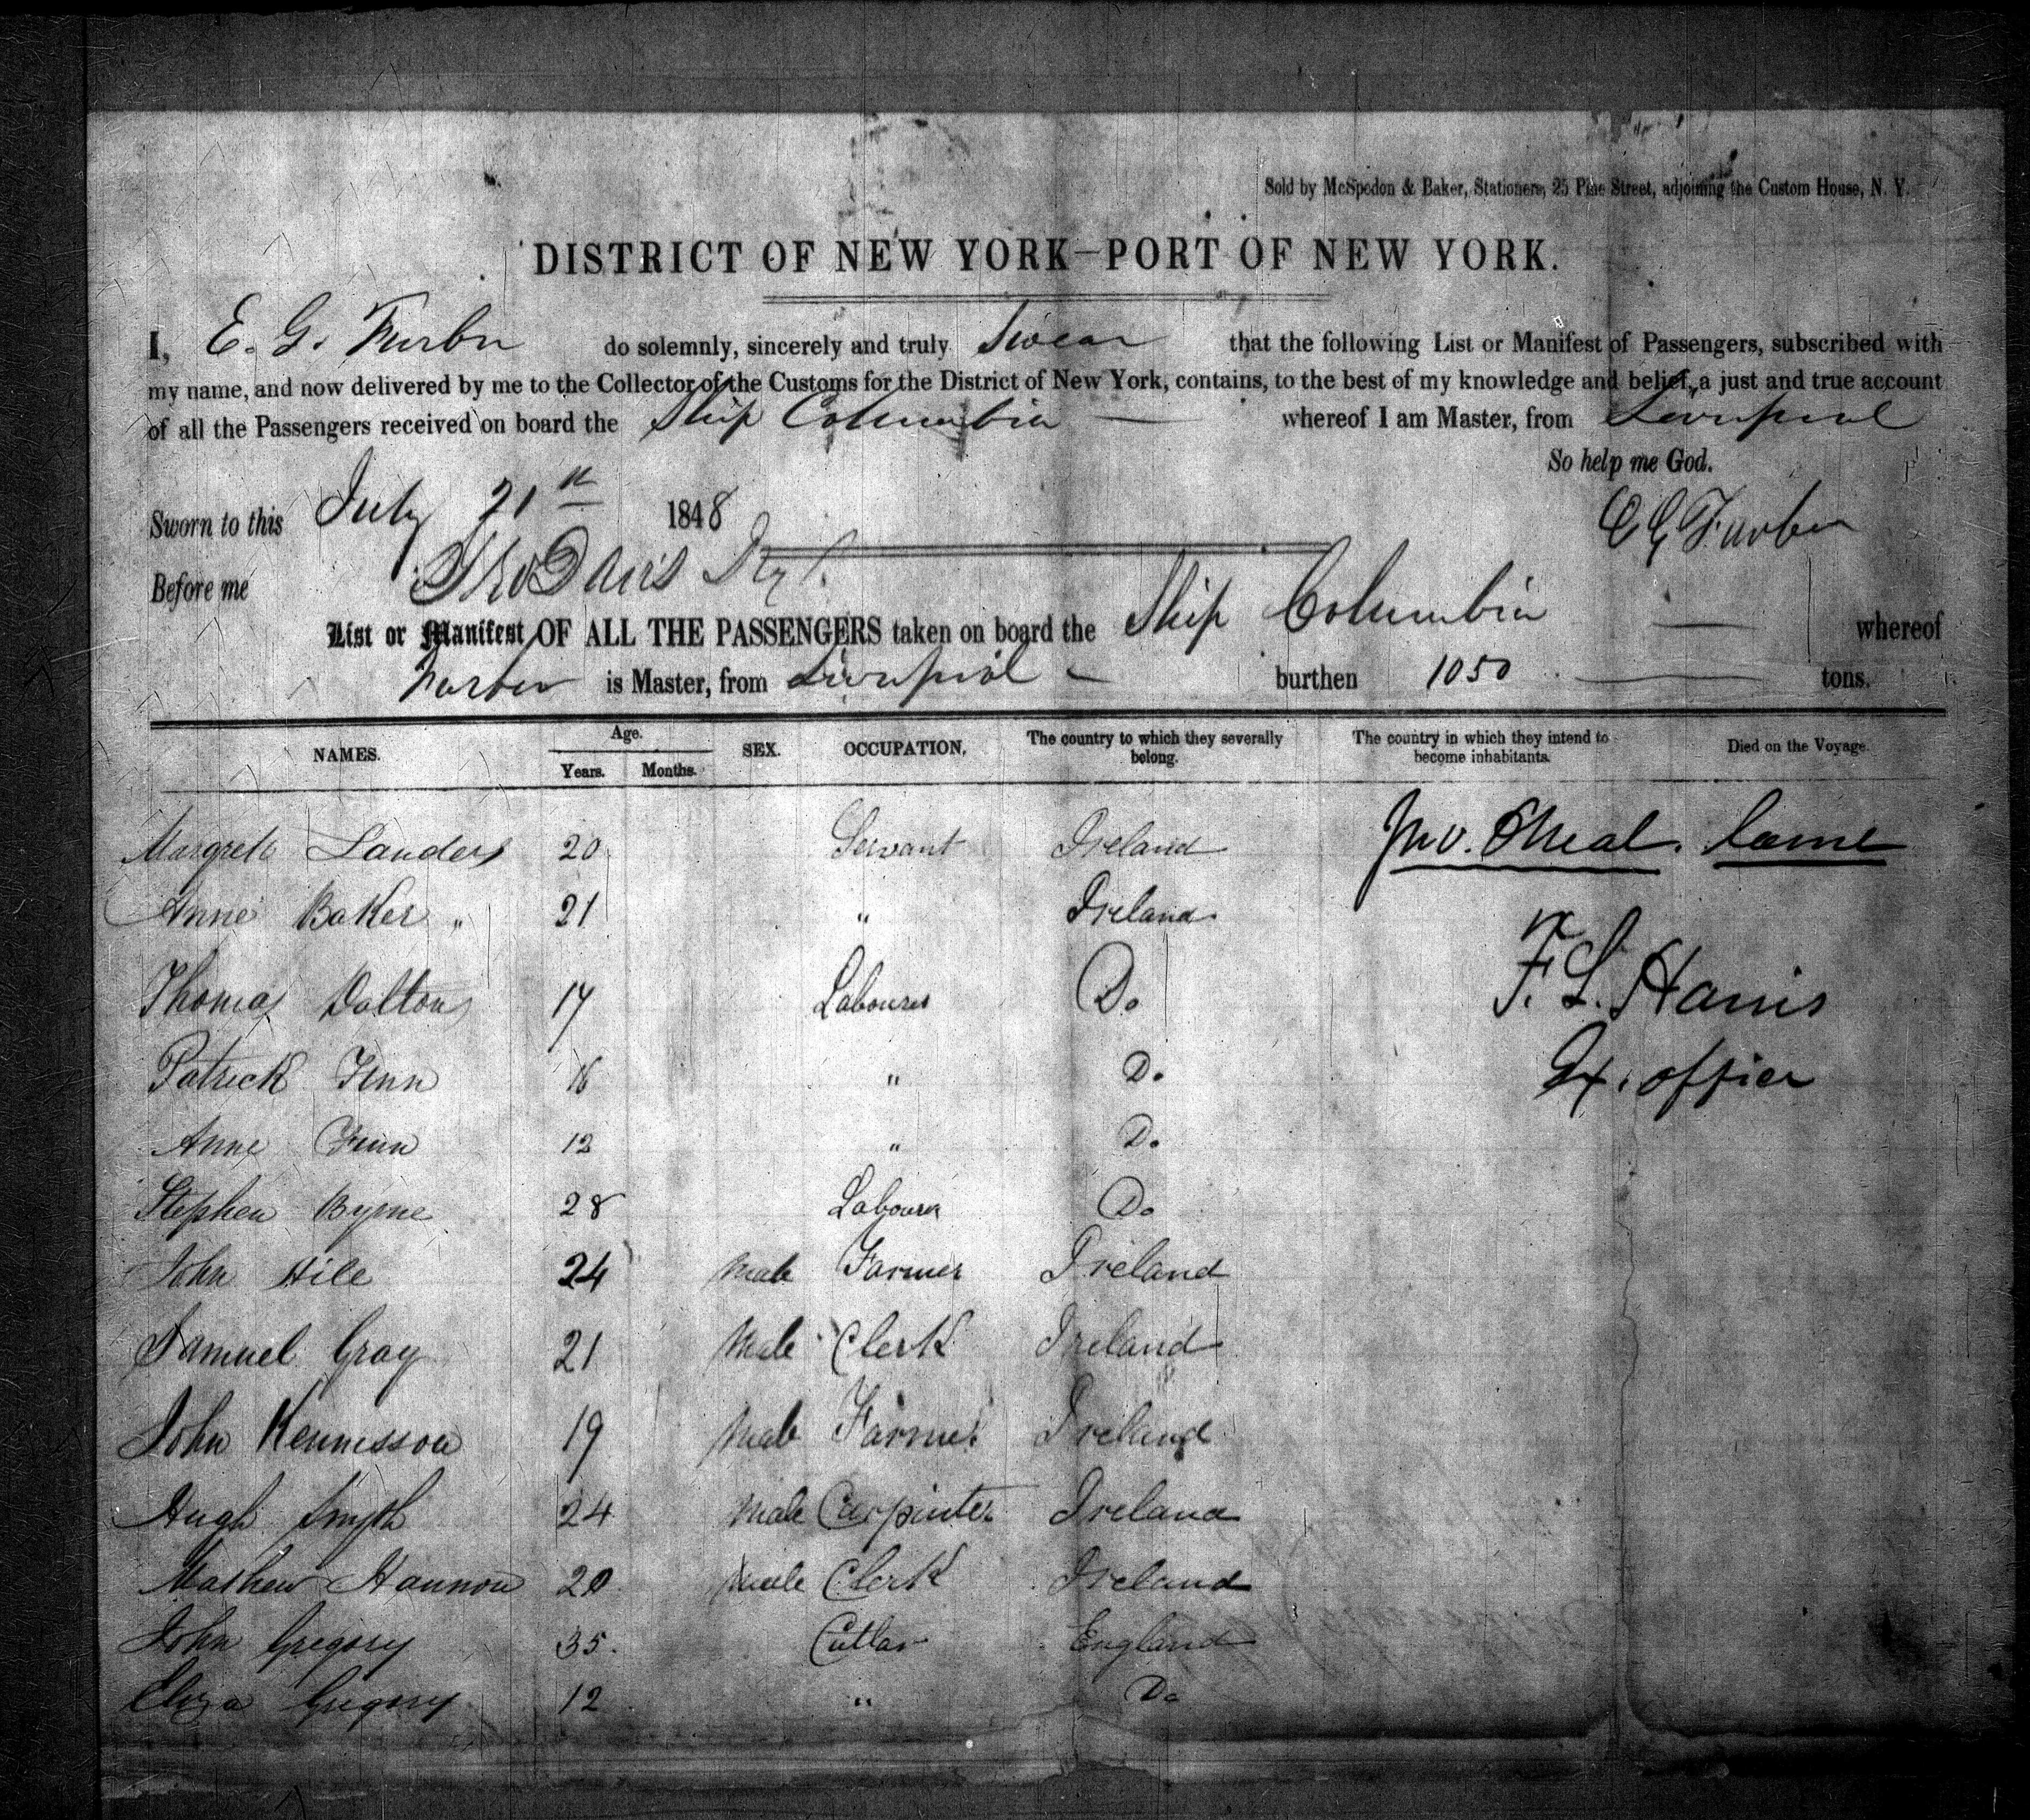 Sold by McSpedon & Baker, Stationers, 25 Pine Street, adjoining the Custom House, N. Y.
DISTRICT OF NEW YORK—PORT OF NEW YORK.
I, E. G. Furber do solemnly, sincerely and truly Swear that the following List or Manifest of Passengers, subscribed with
my name, and now delivered by me to the Collector of the Customs for the District of New York, contains, to the best of my knowledge and belief, a just and true account
of all the Passengers received on board the Ship Columbia whereof I am Master, from Liverpool
So help me God.
Sworn to this July 21st 1848
E G Furber
Before me Tho Davis
List or Manifest OF ALL THE PASSENGERS taken on board the Ship Columbia whereof
Furber is Master, from Liverpool burthen 1050 tons.
NAMES. Age. Years. Months. SEX. OCCUPATION. The country to which they severally belong. The country in which they intend to become inhabitants. Died on the Voyage.
Margrett Landers 20 Servant Ireland
Anne Baker " 21 " Ireland
Thomas Dalton 17 Labourer Do
F. L. Harris
Patrick Finn 16 " Do
officer
Anne Finn 12 " Do
Stephen Byrne 28 Labourer Do
John Hile 24 Male Farmer Ireland
Samuel Gray 21 Male Clerk Ireland
John Kennisson 19 Male Farmer Ireland
Hugh Smyth 24 Male Carpinter Ireland
Mathew Hannon 20 Male Clerk Ireland
John Gregory 35 Cutlar England
Eliza Gregory 12 " Do